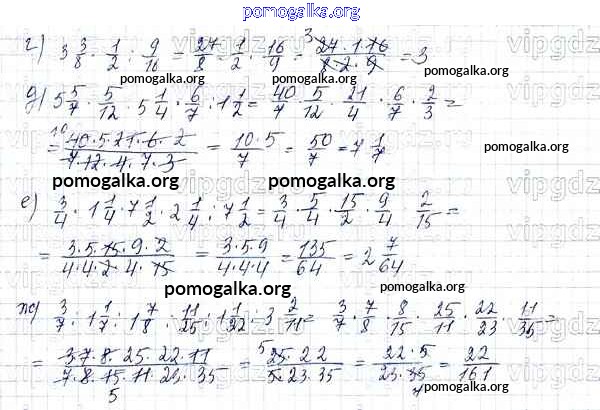 pomogalka.org
г) 3 3/8 · 1/2 : 9/16 = 27/8 · 1/2 · 16/9 = 27·1·16/8·2·9 = 3
pomogalka.org pomogalka.org
д) 5 5/7 · 5/12 · 5 1/4 · 6/7 : 1 1/2 = 40/7 · 5/12 · 21/4 · 6/7 · 2/3 =
= 40·5·21·6·2/7·12·4·7·3 = 10·5/7 = 50/7 = 7 1/7
pomogalka.org pomogalka.org
е) 3/4 · 1 1/4 · 7 1/2 · 2 1/4 : 7 1/2 = 3/4 · 5/4 · 15/2 · 9/4 · 2/15 =
= 3·5·15·9·2/4·4·2·4·15 = 3·5·9/4·4·4 = 135/64 = 2 7/64
pomogalka.org pomogalka.org
ж) 3/7 : 1 1/7 : 1 7/8 : 11/25 : 1 1/22 : 3 2/11 = 3/7 · 7/8 · 8/15 · 25/11 · 22/23 · 11/35 =
= 3·7·8·25·22·11/7·8·15·11·23·35 = 25·22/5·23·35 = 22·5/23·35 = 22/161
pomogalka.org pomogalka.org